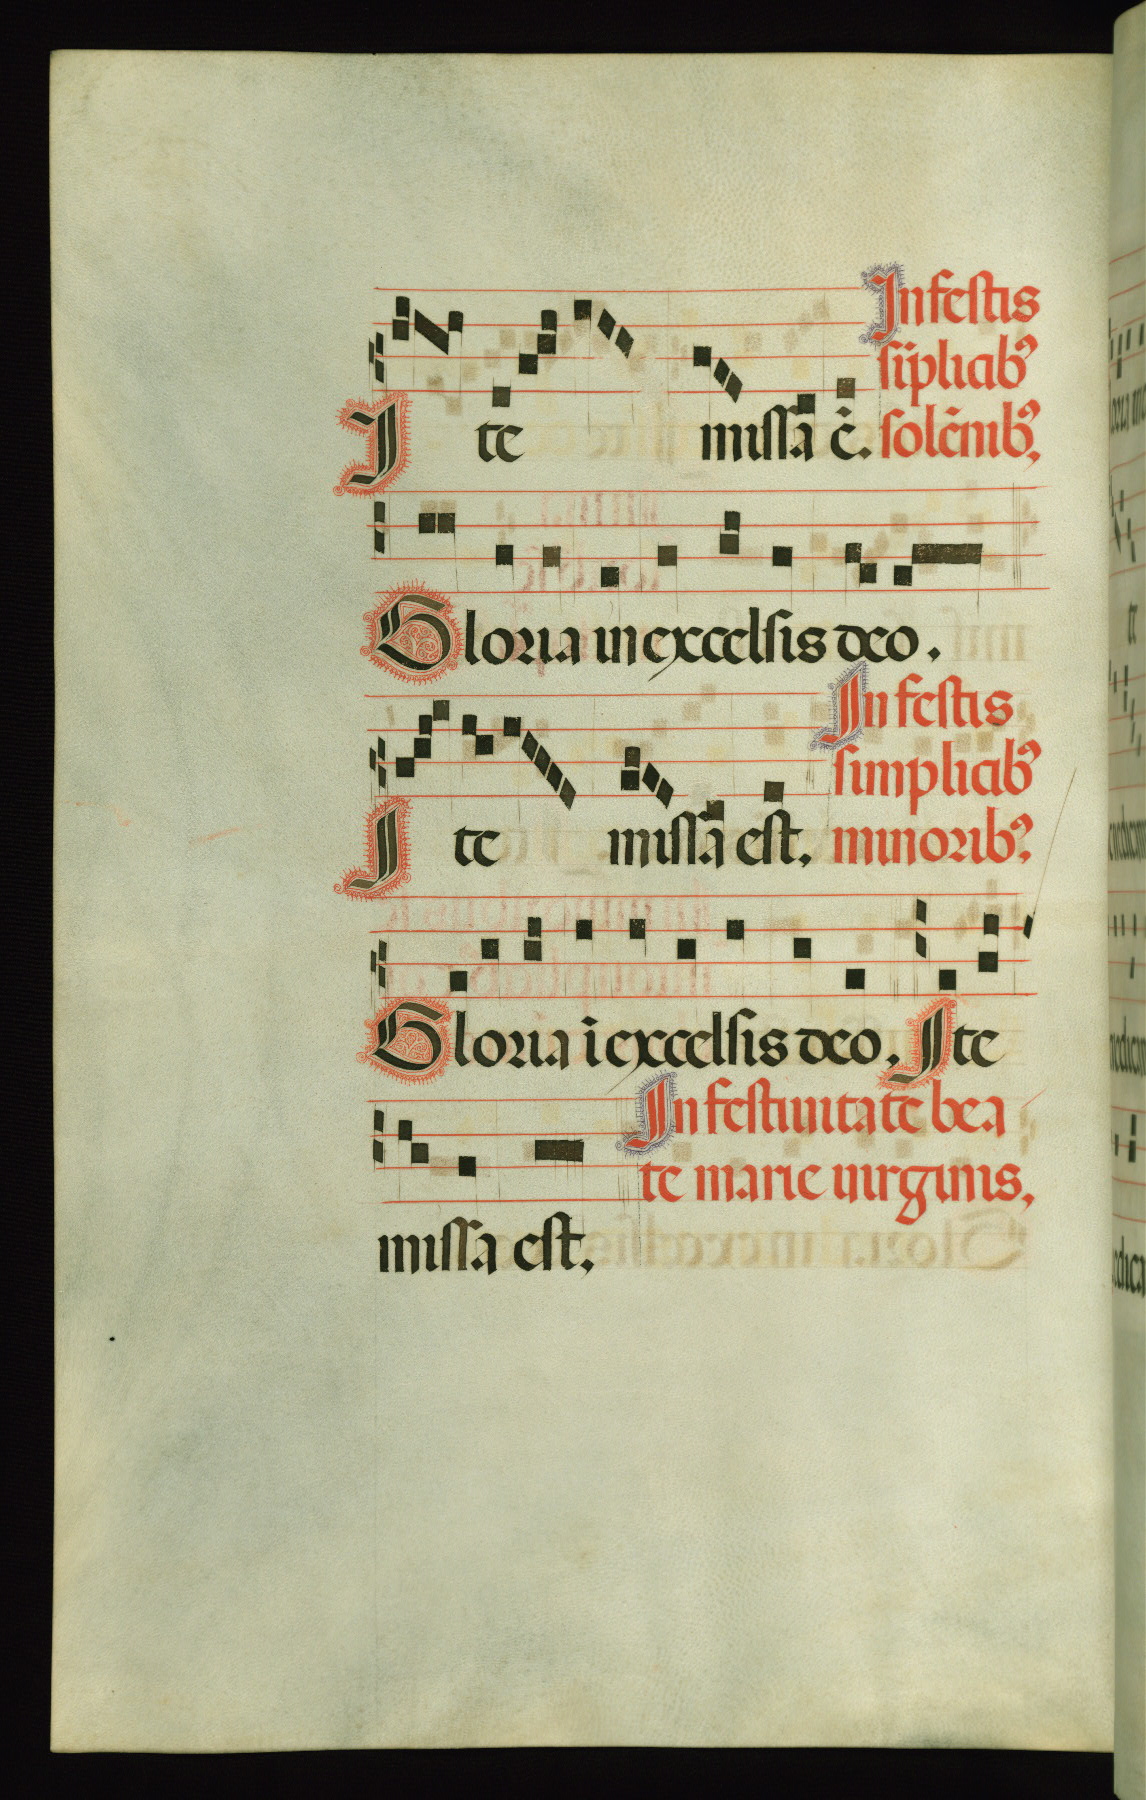 In festis
sīplicib⁹
Ite missa ē. solēnib⁹,
Gloria in excelsis deo.
In festis
simplicib⁹
Ite missa est. minorib⁹.
Gloria ī excelsis deo. Ite
In festiuitate bea
te marie uirginis,
missa est.